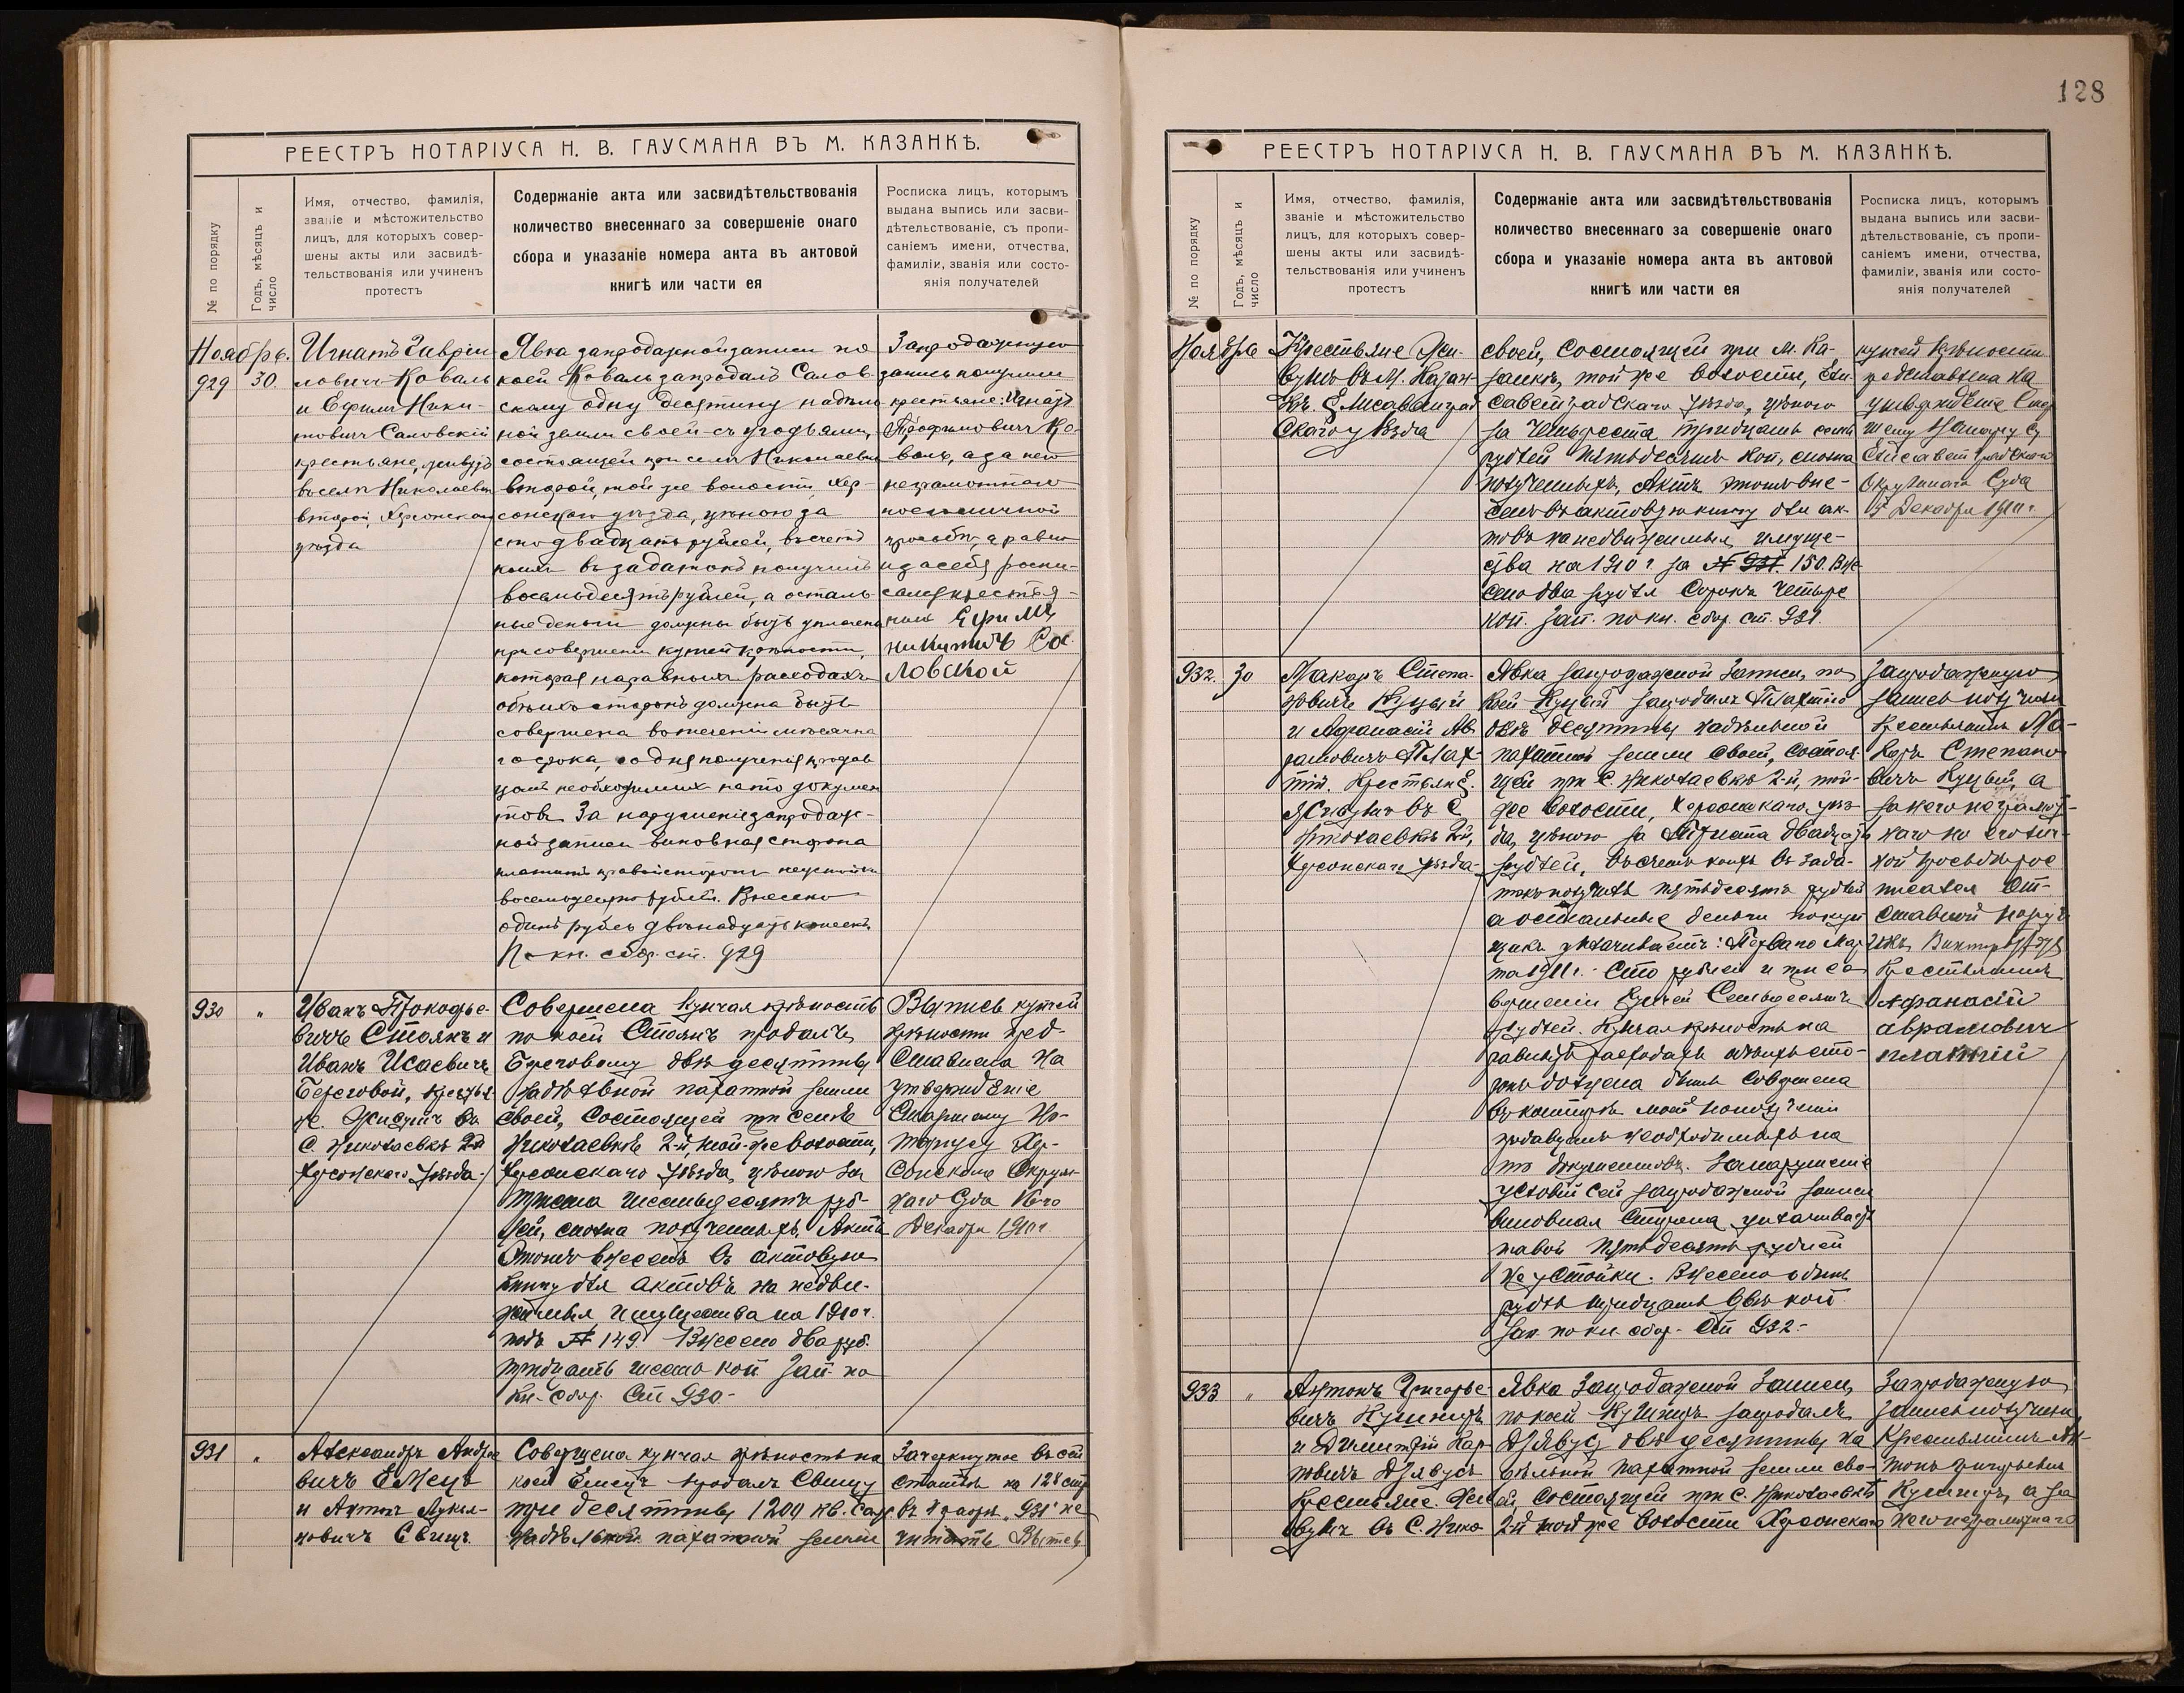 128
РЕЕСТРЪ НОТАРІУСА Н. В. ГАУСМАНА ВЪ М. КАЗАНКѢ.
№ по порядку
Годъ, мѣсяцъ и
число
Имя, отчество, фамилія,
званіе и мѣстожительство
лицъ, для которыхъ совер-
шены акты или засвидѣ-
тельствованія или учиненъ
протестъ
Содержаніе акта или засвидѣтельствованія
количество внесеннаго за совершеніе онаго
сбора и указаніе номера акта въ актовой
книгѣ или части ея
Росписка лицъ, которымъ
выдана выпись или засви-
дѣтельствованіе, съ пропи-
саніемъ имени, отчества,
фамиліи, званія или состо-
янія получателей
Ноябрь.
929
30.
Игнатъ
ловичъ Коваль
и Ефимъ Ники-
товичъ Саловскій
крестьяне, живутъ
въ селѣ Николаевкѣ
второй, Херсонскаго
уѣзда
Явка запродажной записи по
коей Коваль запродалъ Салов-
скому одну десятину надѣль
ной земли своей съ угодьями,
состоящей при селѣ Николаевкѣ
второй, той же волости, Хер-
сонскаго уѣзда, цѣною за
сто двадцать рублей, въ счетъ
коихъ въ задатокъ получилъ
восемьдесятъ рублей, а осталь
ные деньги должны быть уплачены
при совершеніи купчей крѣпости,
которая на равныхъ расходахъ
обѣихъ сторонъ должна быть
совершена въ теченіи мѣсячна
го срока, со дня полученія продав
цомъ необходимыхъ на то докумен
товъ За нарушеніе запродаж-
ной записи виновная сторона
платитъ правой сторонѣ неустойки
восемьдесятъ рублей. Внесено
одинъ рубль двѣнадцать копѣекъ
По кн. сбор. ст. 929
Запродажную
запись получили
крестьяне: Игнатъ
Трофимовичъ Ко-
валь, а за него
неграмотнаго
по его личной
просьбѣ, а равно
и за себя роспи-
сался крестья-
нинъ Ефимъ
Никитичъ Сос
ловской
930
"
Иванъ Прокофье-
вичъ Стоянъ и
Иванъ Исаевичъ
Береговой, крестья-
не. Живутъ въ
с. Николаевкѣ 2й
Херсонскаго уѣзда.
Совершена купчая крѣпость
по коей Стоянъ продалъ
Береговому двѣ десятины
надѣльной пахатной земли
своей, состоящей при селѣ
Николаевкѣ 2-й, той-же волости,
Херсонскаго уѣзда, цѣною за
триста шестьдесятъ руб-
лей, сполна полученныхъ. Актъ
этотъ внесенъ въ актовую
книгу для актовъ на недви-
жимыя имущества на 1910 г.
подъ № 149. Внесено два руб.
тридцать шесть коп. Зап. по
кн. сбор. Ст 930.
Выпись купчей
крѣпости пред-
ставлена на
утвержденіе
Старшему Но-
таріусу Хер-
сонскаго Окруж-
наго Суда
Декабря 1910 г.
931
"
Александръ Андрее
вичъ Емецъ
и Антонъ Лукья-
новичъ Свищъ.
Совершена купчая крѣпость по
коей Емецъ продалъ Свищу
три десятины 1200 кв. саж.
надѣльной пахатной земли
Зачеркнутое въ сей
статьѣ на 128 стр
въ 9 строкѣ "931" не
читать Выпись
РЕЕСТРЪ НОТАРІУСА Н. В. ГАУСМАНА ВЪ М. КАЗАНКѢ.
№ по порядку
Годъ, мѣсяцъ и
число
Имя, отчество, фамилія,
званіе и мѣстожительство
лицъ, для которыхъ совер-
шены акты или засвидѣ-
тельствованія или учиненъ
протестъ
Содержаніе акта или засвидѣтельствованія
количество внесеннаго за совершеніе онаго
сбора и указаніе номера акта въ актовой
книгѣ или части ея
Росписка лицъ, которымъ
выдана выпись или засви-
дѣтельствованіе, съ пропи-
саніемъ имени, отчества,
фамиліи, званія или состо-
янія получателей
Ноябрь
Крестьяне Жи-
вутъ въ М. Казан-
кѣ Елисаветград
скаго уѣзда
своей, состоящей при м. Ка-
занкѣ, той же волости, Ели-
саветградскаго уѣзда, цѣною
за четыреста тридцать семь
рублей пятьдесятъ коп, сполна
полученныхъ, Актъ этотъ вне-
сенъ въ актовую книгу для ак-
товъ на недвижимыя имуще-
ства на 1910 г за № 931. 150. Вне
сено два рубля сорокъ четыре
коп. Зап. по кн. сбор. ст. 931.
купчей крѣпости
представлена на
утвержденіе Стар
шему Нотаріусу
Елисаветградскаго
Окружнаго Суда
Декабря 1910 г.
932.
30
Макаръ Степа-
новичъ Куцый
и Афанасій Ав
рамовичъ Плах-
тій. Крестьяне.
Живутъ въ с
Николаевкѣ 2й,
Херсонскаго уѣзда.
Явка запродажной записи, по
коей Куцый запродалъ Плахтію
двѣ десятины надѣльной
пахатной земли своей, состоя-
щей при с. Николаевкѣ 2-й, той-
же волости, Херсонскаго уѣз-
да, цѣною за триста двадцать
рублей, въ счетъ коихъ въ зада-
токъ получилъ пятьдесятъ рублей
а остальные деньги покуп
щикъ уплачиваетъ: Перваго Мар
та 1911 г. Сто рублей и при со
вершеніи купчей семьдесятъ
рублей. Купчая крѣпость на
равныхъ расходахъ обѣихъ сто-
ронъ должна быть совершена
въ конторѣ моей по полученіи
продавцомъ необходимыхъ на
то документовъ. За нарушеніе
условій сей запродажной записи
виновная сторона уплачиваетъ
правой пятьдесятъ рублей
неустойки. Внесено одинъ
рубль тридцать двѣ коп.
Зап. по кн. сбор. Ст 932.
Запродажную
запись получили
крестьянинъ Ма-
каръ Степано
вичъ Куцый, а
за него неграмот-
наго по его лич-
ной просьбѣ рос
писался От-
ставной
Викторъ
Крестьянинъ
Афанасій
аврамович
плахтій
933
"
Антонъ Григорье-
вичъ Кушниръ
и Димитрій Кар-
повичъ Дзявусь
Крестьяне. Жи
вутъ въ с. Нико
Явка запродажной записи,
по коей Кушниръ запродалъ
Дзявусу двѣ десятины на
дѣльной пахатной земли сво-
ей, состоящей при с. Николаевкѣ
2-й той же волости Херсонскаго
Запродажную
запись получили
Крестьянинъ Ан-
тонъ Григорьевичъ
Кушниръ, а за
него неграмотнаго